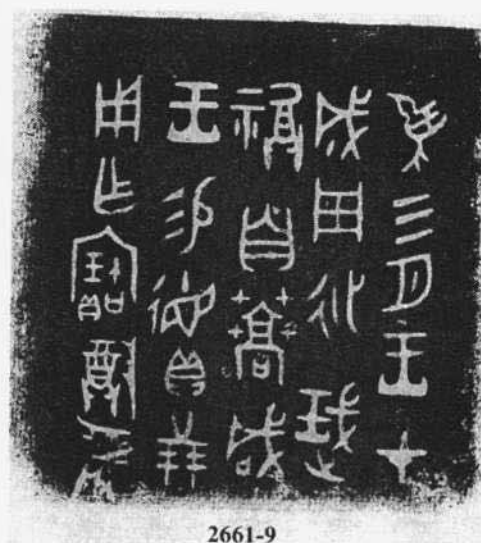 隹三月王才
成周延珷
祼自蒿咸
王易德貝廿朋
用乍寶尊彝
2661-9